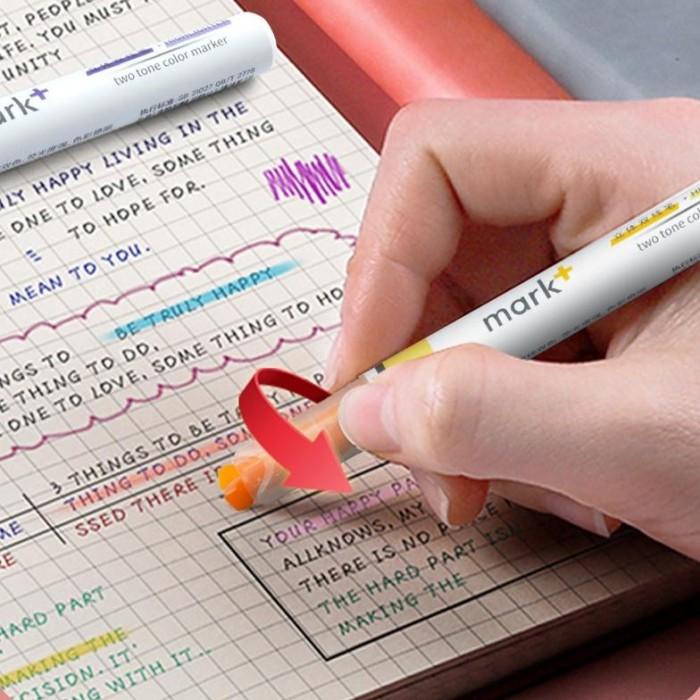 T, PEOPL
IFE. YOU MUST
UNITY
ark+
two tone color marker
ULY HAPPY LIVING IN THE
E ONE TO LOVE, SOME THING
TO HOPE FOR.
MEAN TO YOU.
BE TRULY HAPPY
NGS TO
E THING TO DO,
E ONE TO LOVE, SOME THING TO HO
mark+
two tone co
3 THINGS TO BE
THING TO DO, SOM
SSED THERE IS
ME
RE
YOUR HAPPY PA
ALLKNOWS, MY
THERE IS NO
THE HARD PART IS
MAKING THE
HARD PART
MAKING THE
CISION. IT'
NG WITH IT..